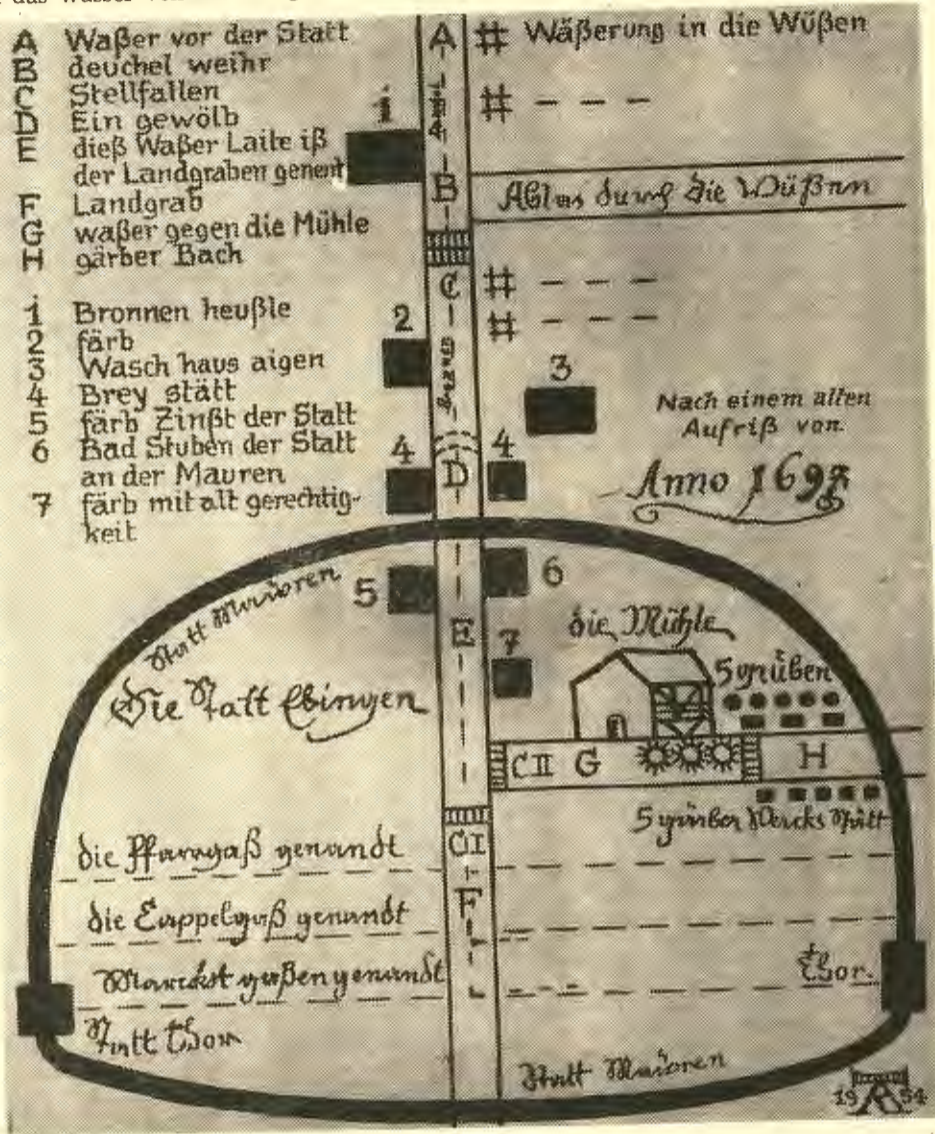 A Waßer vor der Statt
B deuchel weihr
C Stellfallen
D Ein gewölb
E dieß Waßer Laite iß
der Landgraben genent
F Landgrab
G waßer gegen die Mühle
H gärber Bach
1 Bronnen heußle
2 färb
3 Wasch haus aigen
4 Brey stätt
5 färb Zinßt der Statt
6 Bad Stuben der Statt
an der Mauren
7 färb mit alt gerechtig-
keit
A # Wäßerung in die Wüßen
# – – –
1
B Ablas durch die Wüßen
C # – – –
# – – –
2
3
Nach einem alten
Aufriß von
Anno 1697
4 D 4
Statt Mauoren
5 6
E
die Mühle
7
5 grüben
Die Statt Ebingen
CII G H
5 gärber Wercks Stätt
CI
die Pfarrgaß genandt
F
die Cappelgaß genandt
Marckst gaßen genandt
Thor.
Statt Thor
Statt Mauoren
1954